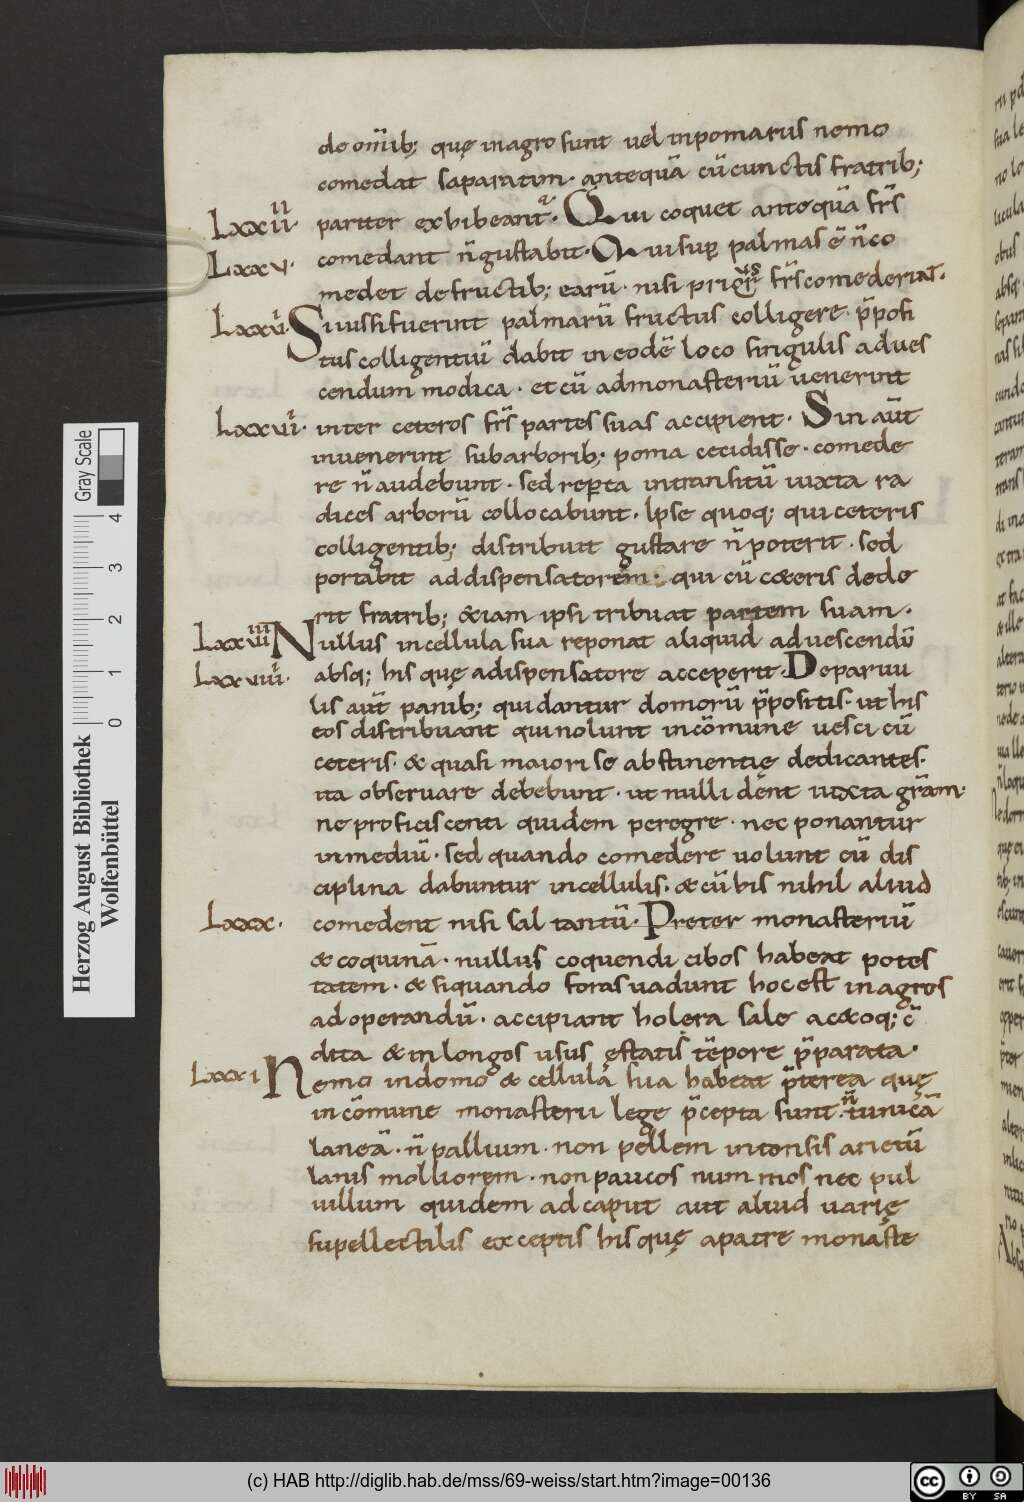 de om̅ib; quę in agro sunt uel in pomariis nemo
comedat saparatim· antequā cū cunctis fratrib;
LXXIIII· pariter exhibeant᷒· Qui coquet antequā fr̅s
LXXV· comedant n̅ gustabit· Qui sup palmas ē n̅ co
medet de fructib; earū· nisi prius fr̅s comederint·
LXXVI· Si iussi fuerint palmarū fructus colligere· p̅posi
tus colligentiū dabit in eodē loco singulis ad ues
cendum modica· et cū ad monasteriū uenerint
LXXVII· inter ceteros fr̅s partes suas accipient· Sin aūt
inuenerint sub arborib; poma cecidisse· comede
re n̅ audebunt· sed reperta in transitū iuxta ra
dices arborū collocabunt· Ipse quoq; qui ceteris
colligentib; distribuit gustare n̅ poterit· sed
portabit ad dispensatorem· qui cū c&eris dede
rit fratrib; &iam ipsi tribuat partem suam·
LXXVIII Nullus in cellula sua reponat aliquid ad uescendū
LXXVIIII· absq; his quę a dispensatore acceperit· De paruu
lis aūt panib; qui dantur domorū p̅positis· ut his
eos distribuant qui nolunt in cōmune uesci cū
ceteris· & quasi maiori se abstinentię dedicantes·
ita obseruare debebunt· ut nulli dent iuxta grā̅m·
ne proficiscenti quidem peregre· nec ponantur
in mediū· sed quando comedere uolunt cū dis
ciplina dabuntur in cellulis· & cū his nihil aliud
LXXX· comedent nisi sal tantū· Preter monasteriū
& coquinā· nullus coquendi cibos habeat potes
tatem· & si quando foras uadunt hoc est in agros
ad operandū· accipiant holera sale ac&oq; c̅
dita & in longos usus ęstatis tēpore p̅parata·
LXXXI Nemo in domo & cellula sua habeat p̅terea quę
in cōmune monasterii lege p̅cepta sunt· n̅ tunicā
laneā· n̅ pallium· non pellem intonsis arietū
lanis molliorem· non paucos nummos nec pul
uillum quidem ad caput aut aliud uarię
supellectilis exceptis his quę a patre monaste
Herzog August Bibliothek
Wolfenbüttel
Gray Scale
0 1 2 3 4
(c) HAB http://diglib.hab.de/mss/69-weiss/start.htm?image=00136
cc BY SA